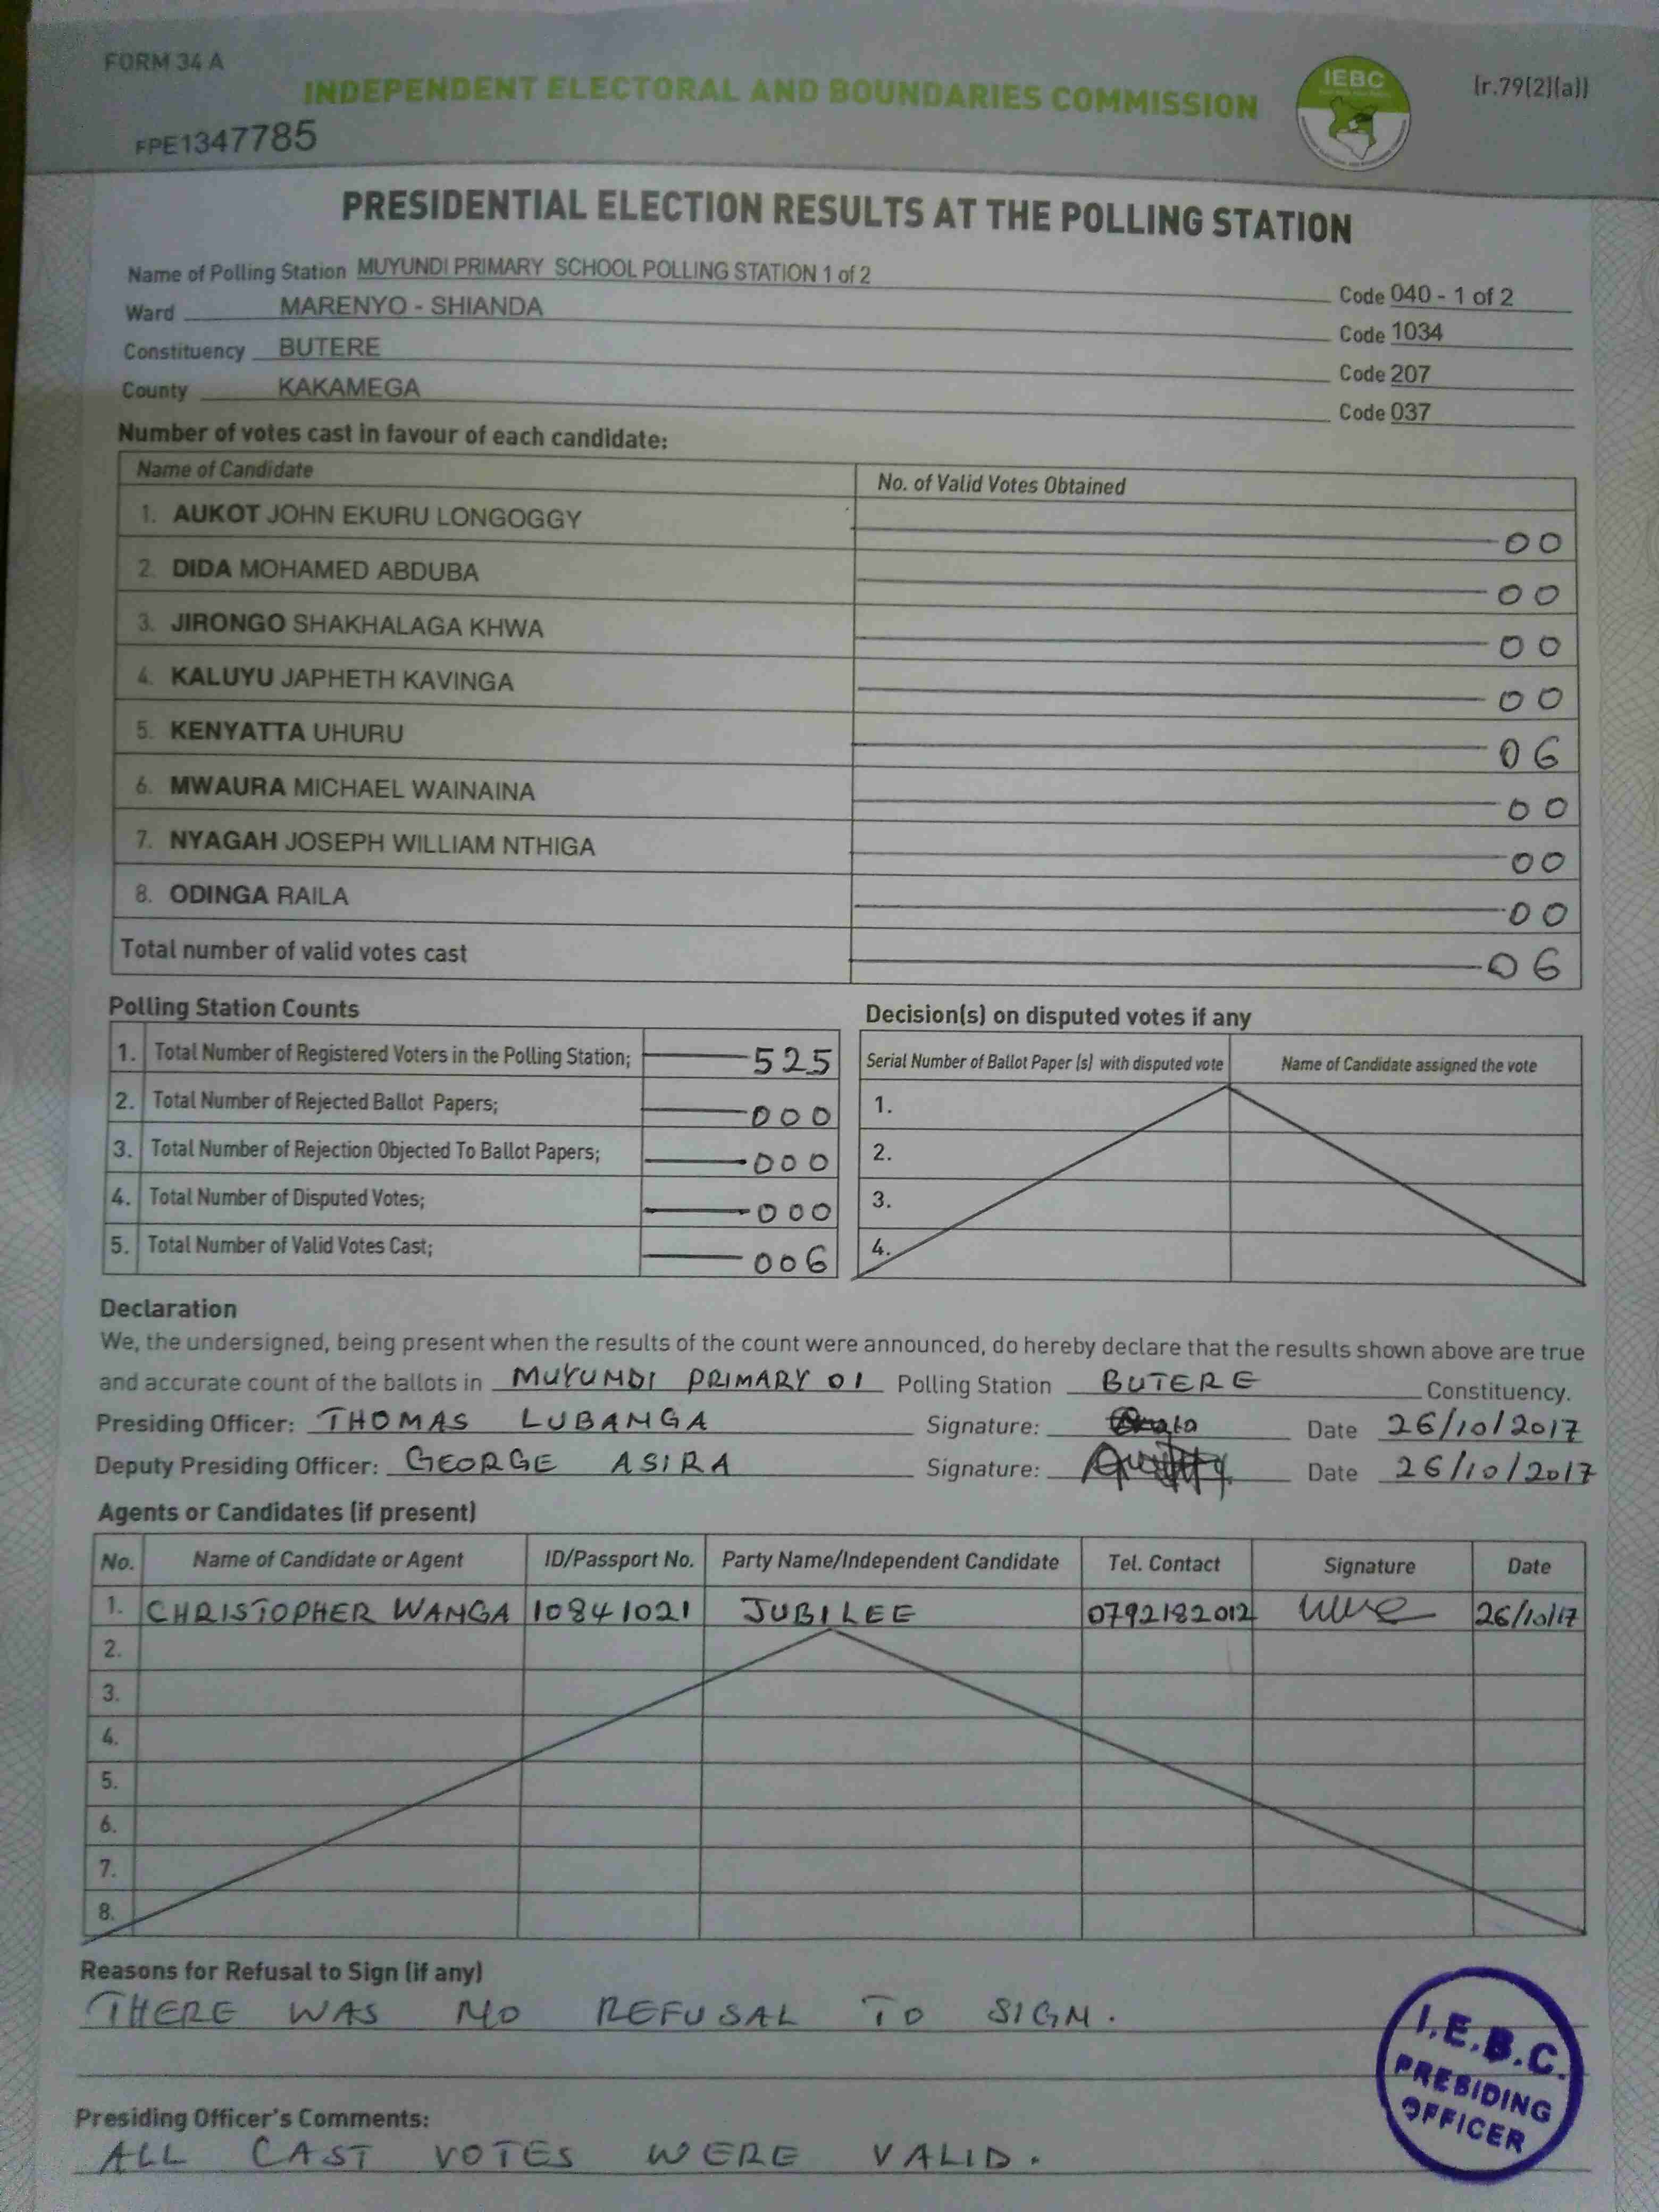 FORM 34 A
INDEPENDENT ELECTORAL AND BOUNDARIES COMMISSION
IEBC
(r.79(2)(a))
FPE1347785
PRESIDENTIAL ELECTION RESULTS AT THE POLLING STATION
Name of Polling Station MUYUNDI PRIMARY SCHOOL POLLING STATION 1 of 2 Code 040 - 1 of 2
Ward MARENYO - SHIANDA Code 1034
Constituency BUTERE Code 207
County KAKAMEGA Code 037
Number of votes cast in favour of each candidate:
Name of Candidate No. of Valid Votes Obtained
1. AUKOT JOHN EKURU LONGOGGY 00
2. DIDA MOHAMED ABDUBA 00
3. JIRONGO SHAKHALAGA KHWA 00
4. KALUYU JAPHETH KAVINGA 00
5. KENYATTA UHURU 06
6. MWAURA MICHAEL WAINAINA 00
7. NYAGAH JOSEPH WILLIAM NTHIGA 00
8. ODINGA RAILA 00
Total number of valid votes cast 06
Polling Station Counts
1. Total Number of Registered Voters in the Polling Station; 525
2. Total Number of Rejected Ballot Papers; 000
3. Total Number of Rejection Objected To Ballot Papers; 000
4. Total Number of Disputed Votes; 000
5. Total Number of Valid Votes Cast; 006
Decision(s) on disputed votes if any
Serial Number of Ballot Paper (s) with disputed vote Name of Candidate assigned the vote
1.
2.
3.
4.
Declaration
We, the undersigned, being present when the results of the count were announced, do hereby declare that the results shown above are true
and accurate count of the ballots in MUYUNDI PRIMARY 01 Polling Station BUTERE Constituency.
Presiding Officer: THOMAS LUBANGA Signature: Date 26/10/2017
Deputy Presiding Officer: GEORGE ASIRA Signature: Date 26/10/2017
Agents or Candidates (if present)
No. Name of Candidate or Agent ID/Passport No. Party Name/Independent Candidate Tel. Contact Signature Date
1. CHRISTOPHER WANGA 10841021 JUBILEE 0792182012 26/10/17
2.
3.
4.
5.
6.
7.
8.
Reasons for Refusal to Sign (if any)
THERE WAS NO REFUSAL TO SIGN.
Presiding Officer's Comments:
ALL CAST VOTES WERE VALID.
I.E.B.C.
PRESIDING
OFFICER